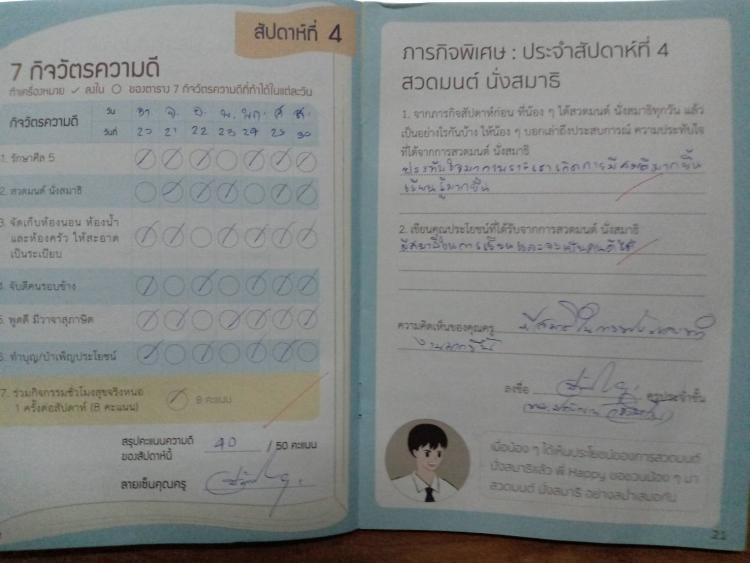 สัปดาห์ที่ 4
7 กิจวัตรความดี
ทำเครื่องหมาย ✓ ลงใน ○ ของตาราง 7 กิจวัตรความดีที่ทำได้ในแต่ละวัน
กิจวัตรความดี
วัน อา. จ. อ. พ. พฤ. ศ. ส.
วันที่ 20 21 22 23 24 25 30
1. รักษาศีล 5
2. สวดมนต์ นั่งสมาธิ
3. จัดเก็บห้องนอน ห้องน้ำ
และห้องครัว ให้สะอาด
เป็นระเบียบ
4. จับดีคนรอบข้าง
5. พูดดี มีวาจาสุภาษิต
6. ทำบุญ/บำเพ็ญประโยชน์
7. ร่วมกิจกรรมชั่วโมงสุขจริงหนอ
1 ครั้งต่อสัปดาห์ (8 คะแนน)
8 คะแนน
สรุปคะแนนความดี
ของสัปดาห์นี้
40 / 50 คะแนน
ลายเซ็นคุณครู
ภารกิจพิเศษ : ประจำสัปดาห์ที่ 4
สวดมนต์ นั่งสมาธิ
1. จากภารกิจสัปดาห์ก่อน ที่น้อง ๆ ได้สวดมนต์ นั่งสมาธิทุกวัน แล้ว
เป็นอย่างไรกันบ้าง ให้น้อง ๆ บอกเล่าถึงประสบการณ์ ความประทับใจ
ที่ได้จากการสวดมนต์ นั่งสมาธิ
ประทับใจมากเพราะเราเกิดการมีสมาธิมากขึ้น
เรียนรู้มากขึ้น
2. เขียนคุณประโยชน์ที่ได้รับจากการสวดมนต์ นั่งสมาธิ
มีสมาธิในการเรียน
ความคิดเห็นของคุณครู
มีสมาธิในการ
งานมากขึ้น
ลงชื่อ ครูประจำชั้น
เมื่อน้อง ๆ ได้เห็นประโยชน์ของการสวดมนต์
นั่งสมาธิแล้ว พี่ Happy ขอชวนน้อง ๆ มา
สวดมนต์ นั่งสมาธิ อย่างสม่ำเสมอกัน
21